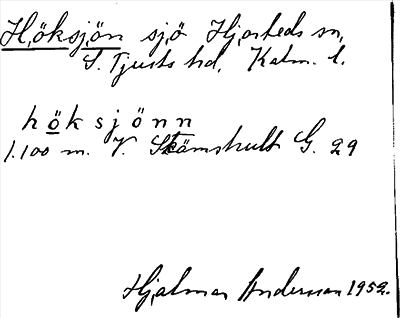 Höksjön sjö Hjorteds sn,
S. Tjusts hd, Kalm. l.
höksjönn
1.100 m. V. Skämshult G. 29
Hjalmar Andersson 1952.